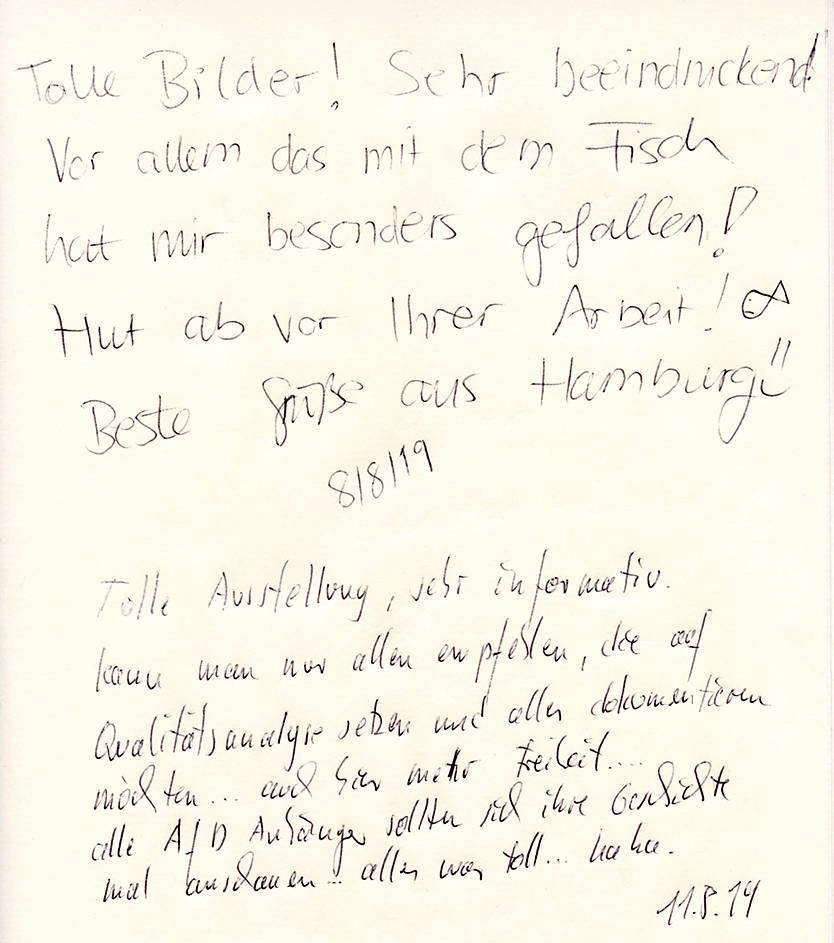 Tolle Bilder! Sehr beeindruckend!
Vor allem das mit dem Fisch
hat mir besonders gefallen!
Hut ab vor Ihrer Arbeit!
Beste Grüße aus Hamburg!!
8/8/19
Tolle Ausstellung, sehr informativ.
kann man nur allen empfehlen, die auf
Qualitätsanalyse setzen und alles dokumentieren
möchten... auch hier mehr Freiheit....
alle AfD Anhänger sollten sich ihre Geschichte
mal anschauen... alles war toll... haha.
11.8.19